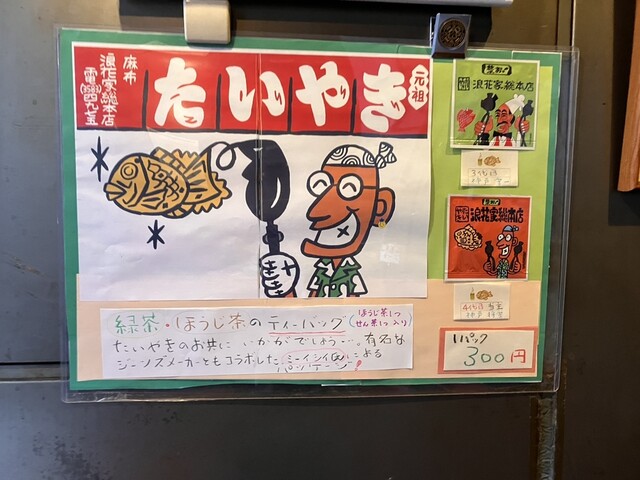 元祖
たいやき
麻布
浪花家総本店
電(3583)四九七五
浪花家総本店
3代目
浪花家総本店
4代目
緑茶・ほうじ茶のティーバッグ(ほうじ茶1つ せん茶1つ入り)
たいやきのお共に いかがでしょうー。有名な
ジーンズメーカーともコラボしたミーイシイ(画)による
パッケージ!
1パック
300円